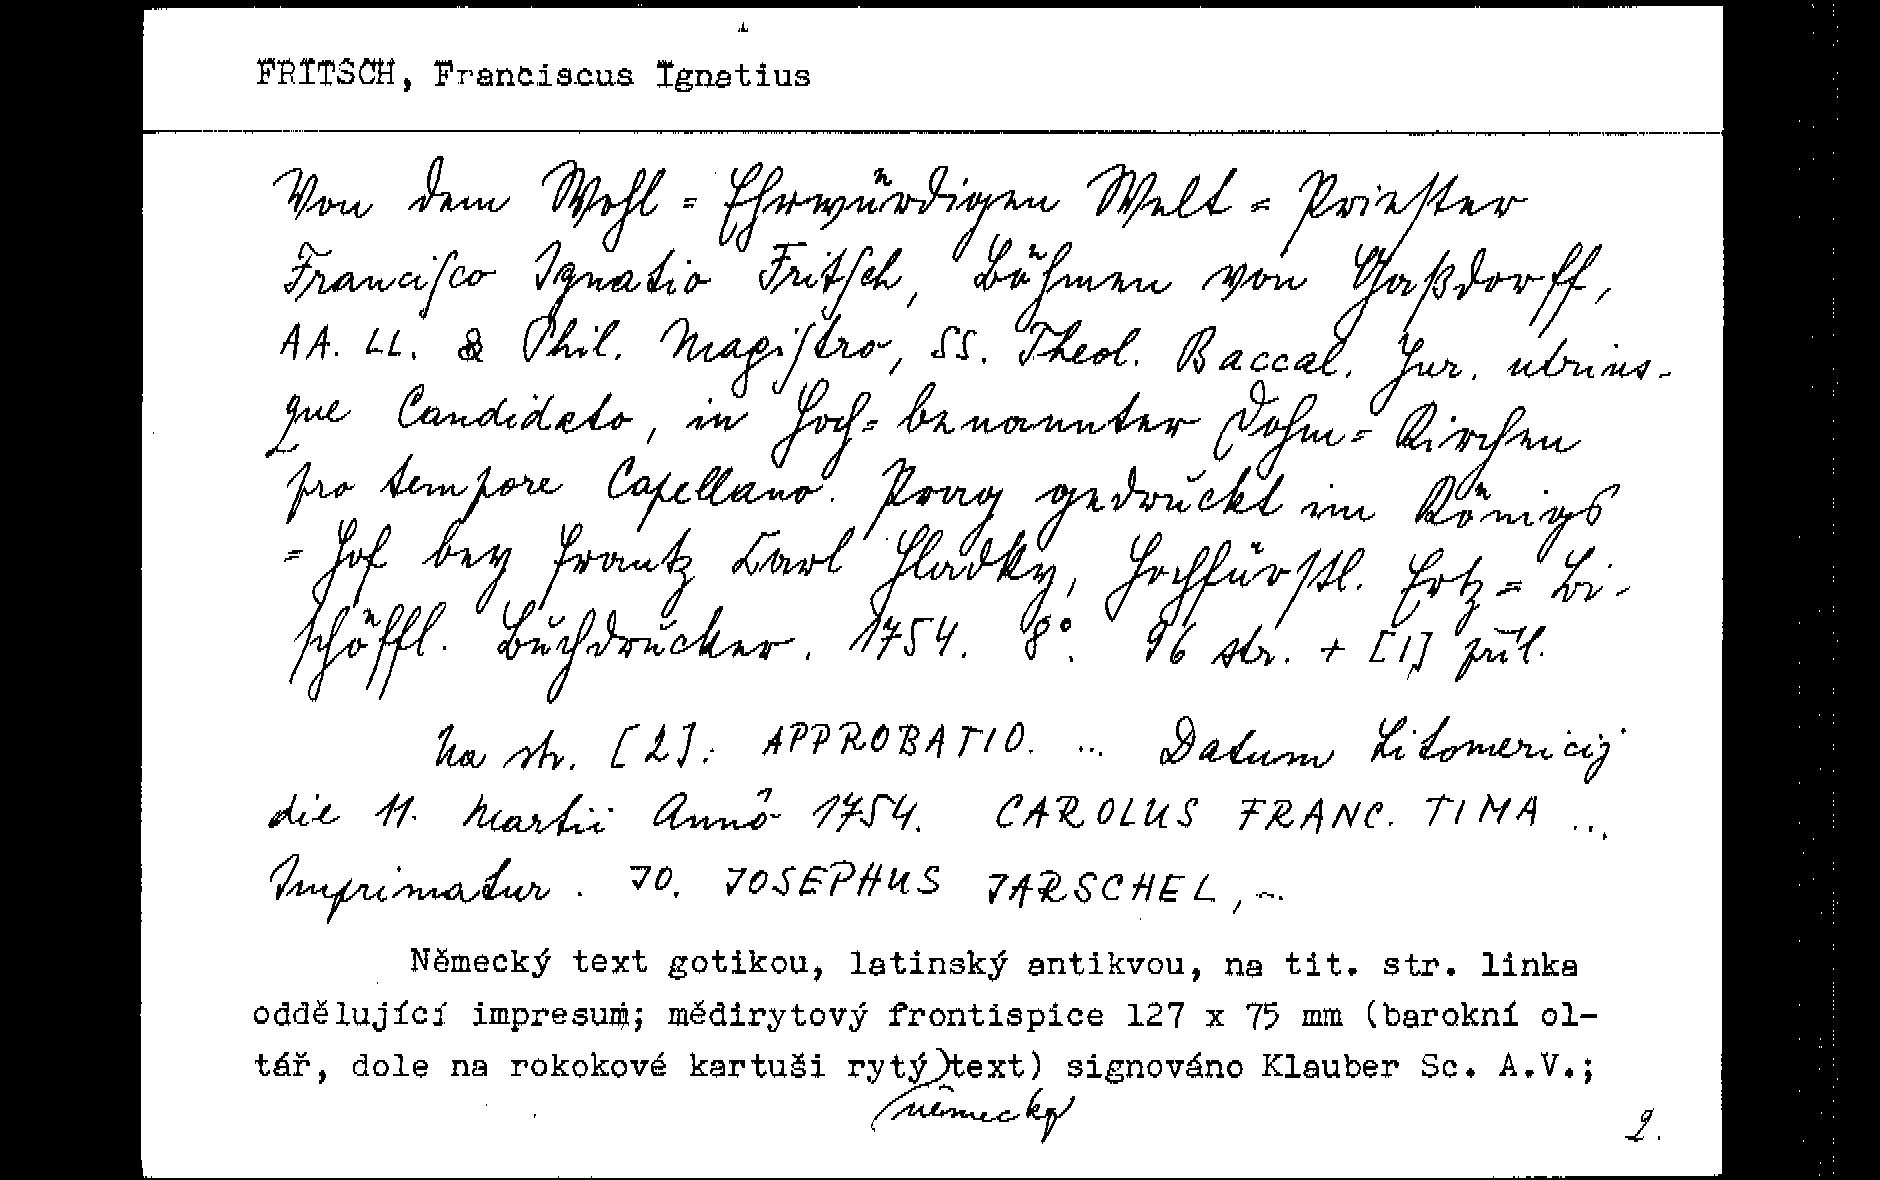 FRITSCH, Franciscus Ignatius
Von dem Wohl = Ehrwürdigen Welt = Priester
Franciſco Ignatio Fritſch, Böhmen von Gaßdorff,
AA. LL. & Phil. Magiſtro, SS. Theol. Baccal. Jur. utrius-
que Candidato, in Hoch = benannter Dohm = Kirchen
pro tempore Capellano. Prag gedruckt im Königs
= Hof bey Frantz Carl Hladky, Hochfürſtl. Ertz = Bi-
ſchöffl. Buchdrucker. 1754. 8°. 96 str. + [1] příl.
Na str. [2]: APPROBATIO. ... Datum Litomericij
die 11. Martii Annô 1754. CAROLUS FRANC. TIMA ...
Imprimatur. JO. JOSEPHUS JARSCHEL, ...
Německý text gotikou, latinský antikvou, na tit. str. linka
oddělující impresum; mědirytový frontispice 127 x 75 mm (barokní ol-
tář, dole na rokokové kartuši rytý text) signováno Klauber Sc. A.V.;
německý
2.